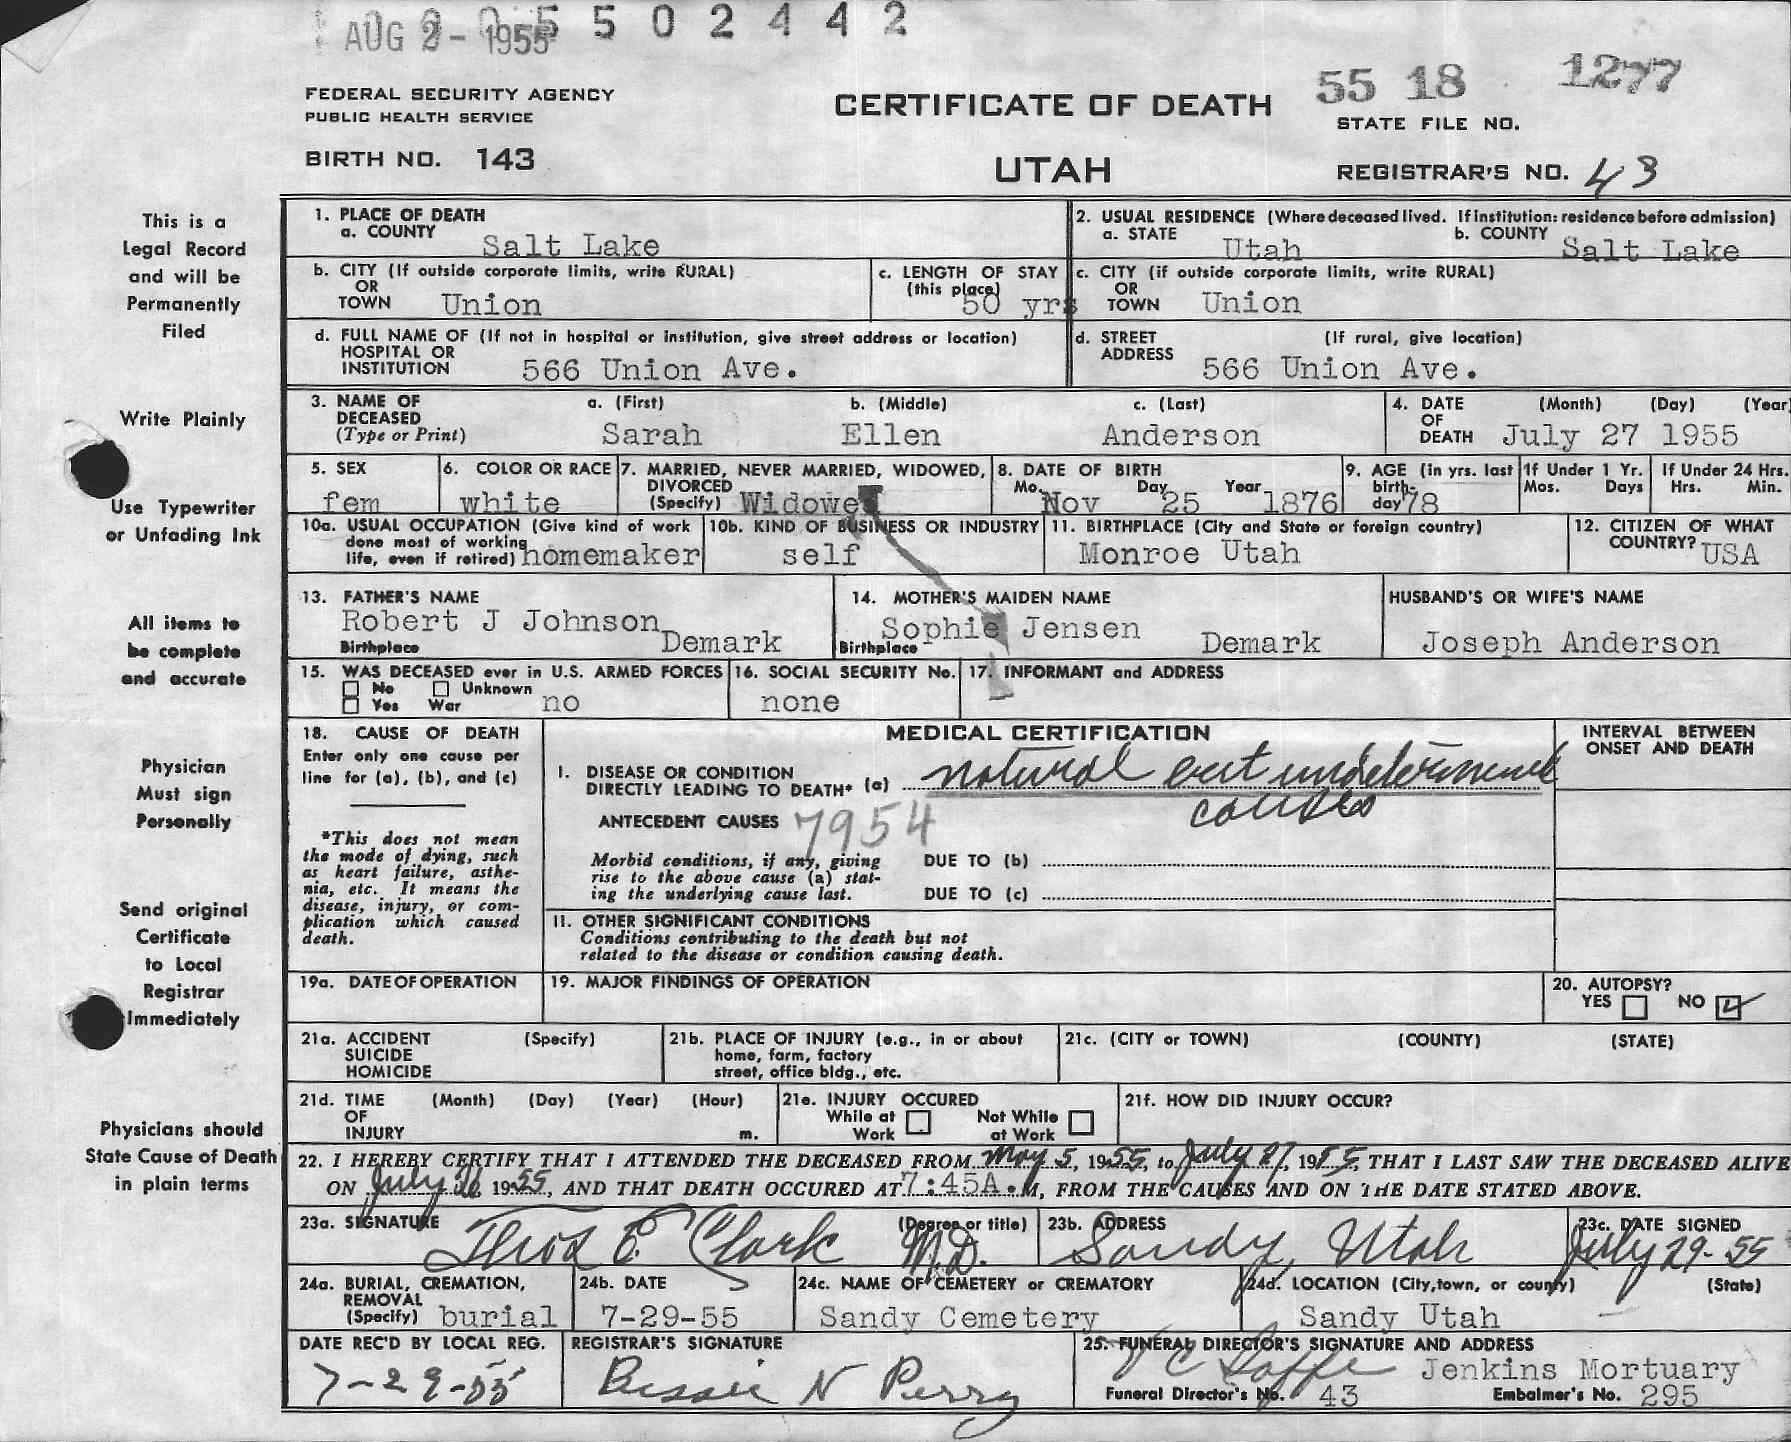 AUG 2 - 1955 5 5 0 2 4 4 2
FEDERAL SECURITY AGENCY
PUBLIC HEALTH SERVICE
BIRTH NO. 143
CERTIFICATE OF DEATH
UTAH
55 18 1277
STATE FILE NO.
REGISTRAR'S NO. 43
This is a
Legal Record
and will be
Permanently
Filed
Write Plainly
Use Typewriter
or Unfading Ink
All items to
be complete
and accurate
Physician
Must sign
Personally
Send original
Certificate
to Local
Registrar
Immediately
Physicians should
State Cause of Death
in plain terms
1. PLACE OF DEATH
a. COUNTY Salt Lake
2. USUAL RESIDENCE (Where deceased lived. If institution: residence before admission)
a. STATE Utah b. COUNTY Salt Lake
b. CITY (If outside corporate limits, write RURAL)
OR
TOWN Union
c. LENGTH OF STAY
(this place) 50 yrs
c. CITY (if outside corporate limits, write RURAL)
OR
TOWN Union
d. FULL NAME OF (If not in hospital or institution, give street address or location)
HOSPITAL OR
INSTITUTION 566 Union Ave.
d. STREET (If rural, give location)
ADDRESS 566 Union Ave.
3. NAME OF a. (First) b. (Middle) c. (Last)
DECEASED
(Type or Print) Sarah Ellen Anderson
4. DATE (Month) (Day) (Year)
OF
DEATH July 27 1955
5. SEX
fem
6. COLOR OR RACE
white
7. MARRIED, NEVER MARRIED, WIDOWED,
DIVORCED
(Specify) Widowed
8. DATE OF BIRTH
Mo. Day Year
Nov 25 1876
9. AGE (in yrs. last
birth-
day 78
If Under 1 Yr.
Mos. Days
If Under 24 Hrs.
Hrs. Min.
10a. USUAL OCCUPATION (Give kind of work
done most of working
life, even if retired) homemaker
10b. KIND OF BUSINESS OR INDUSTRY
self
11. BIRTHPLACE (City and State or foreign country)
Monroe Utah
12. CITIZEN OF WHAT
COUNTRY? USA
13. FATHER'S NAME
Robert J Johnson
Birthplace Demark
14. MOTHER'S MAIDEN NAME
Sophie Jensen
Birthplace Demark
HUSBAND'S OR WIFE'S NAME
Joseph Anderson
15. WAS DECEASED ever in U.S. ARMED FORCES
No Unknown
Yes War no
16. SOCIAL SECURITY No.
none
17. INFORMANT and ADDRESS
18. CAUSE OF DEATH
Enter only one cause per
line for (a), (b), and (c)
*This does not mean
the mode of dying, such
as heart failure, asthe-
nia, etc. It means the
disease, injury, or com-
plication which caused
death.
MEDICAL CERTIFICATION
I. DISEASE OR CONDITION
DIRECTLY LEADING TO DEATH* (a) natural but undetermined
causes
ANTECEDENT CAUSES 7954
Morbid conditions, if any, giving
rise to the above cause (a) stat-
ing the underlying cause last.
DUE TO (b)
DUE TO (c)
II. OTHER SIGNIFICANT CONDITIONS
Conditions contributing to the death but not
related to the disease or condition causing death.
INTERVAL BETWEEN
ONSET AND DEATH
19a. DATE OF OPERATION
19. MAJOR FINDINGS OF OPERATION
20. AUTOPSY?
YES NO
21a. ACCIDENT (Specify)
SUICIDE
HOMICIDE
21b. PLACE OF INJURY (e.g., in or about
home, farm, factory
street, office bldg., etc.
21c. (CITY or TOWN) (COUNTY) (STATE)
21d. TIME (Month) (Day) (Year) (Hour)
OF
INJURY m.
21e. INJURY OCCURED
While at Not While
Work at Work
21f. HOW DID INJURY OCCUR?
22. I HEREBY CERTIFY THAT I ATTENDED THE DECEASED FROM May 5, 1955, to July 27, 1955, THAT I LAST SAW THE DECEASED ALIVE
ON July 26 1955, AND THAT DEATH OCCURED AT 7:45A.M, FROM THE CAUSES AND ON THE DATE STATED ABOVE.
23a. SIGNATURE (Degree or title)
Thos E Clark M.D.
23b. ADDRESS
Sandy, Utah
23c. DATE SIGNED
July 29-55
24a. BURIAL, CREMATION,
REMOVAL
(Specify) burial
24b. DATE
7-29-55
24c. NAME OF CEMETERY or CREMATORY
Sandy Cemetery
24d. LOCATION (City, town, or county) (State)
Sandy Utah
DATE REC'D BY LOCAL REG.
7-29-55
REGISTRAR'S SIGNATURE
Bessie N Perry
25. FUNERAL DIRECTOR'S SIGNATURE AND ADDRESS
Jenkins Mortuary
Funeral Director's No. 43 Embalmer's No. 295